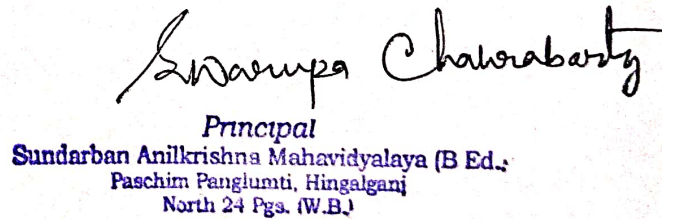 Swarupa Chakrabarty
Principal
Sundarban Anilkrishna Mahavidyalaya (B Ed.,
Paschim Panglumti, Hingalganj
North 24 Pgs. (W.B.)